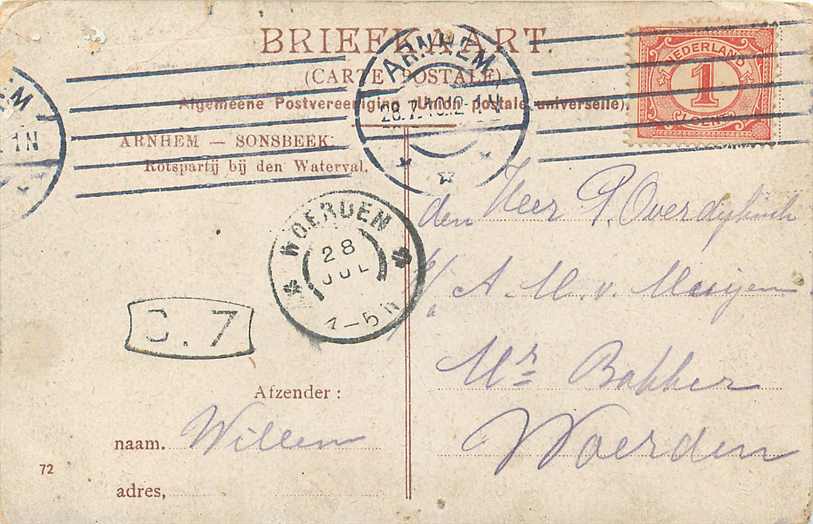 BRIEFKAART.
(CARTE POSTALE)
Algemeene Postvereeniging (Union postale universelle).
ARNHEM — SONSBEEK
Rotspartij bij den Waterval.
ARNHEM
28.7.10.12-1N
EM
1N
NEDERLAND
1
CENT
WOERDEN
28
JUL
1-5N
C.7
den Heer P. Overdijkink
p/a A. M. v. Meijen
Mr Bakker
Woerden
Afzender:
naam. Willem
adres,
72